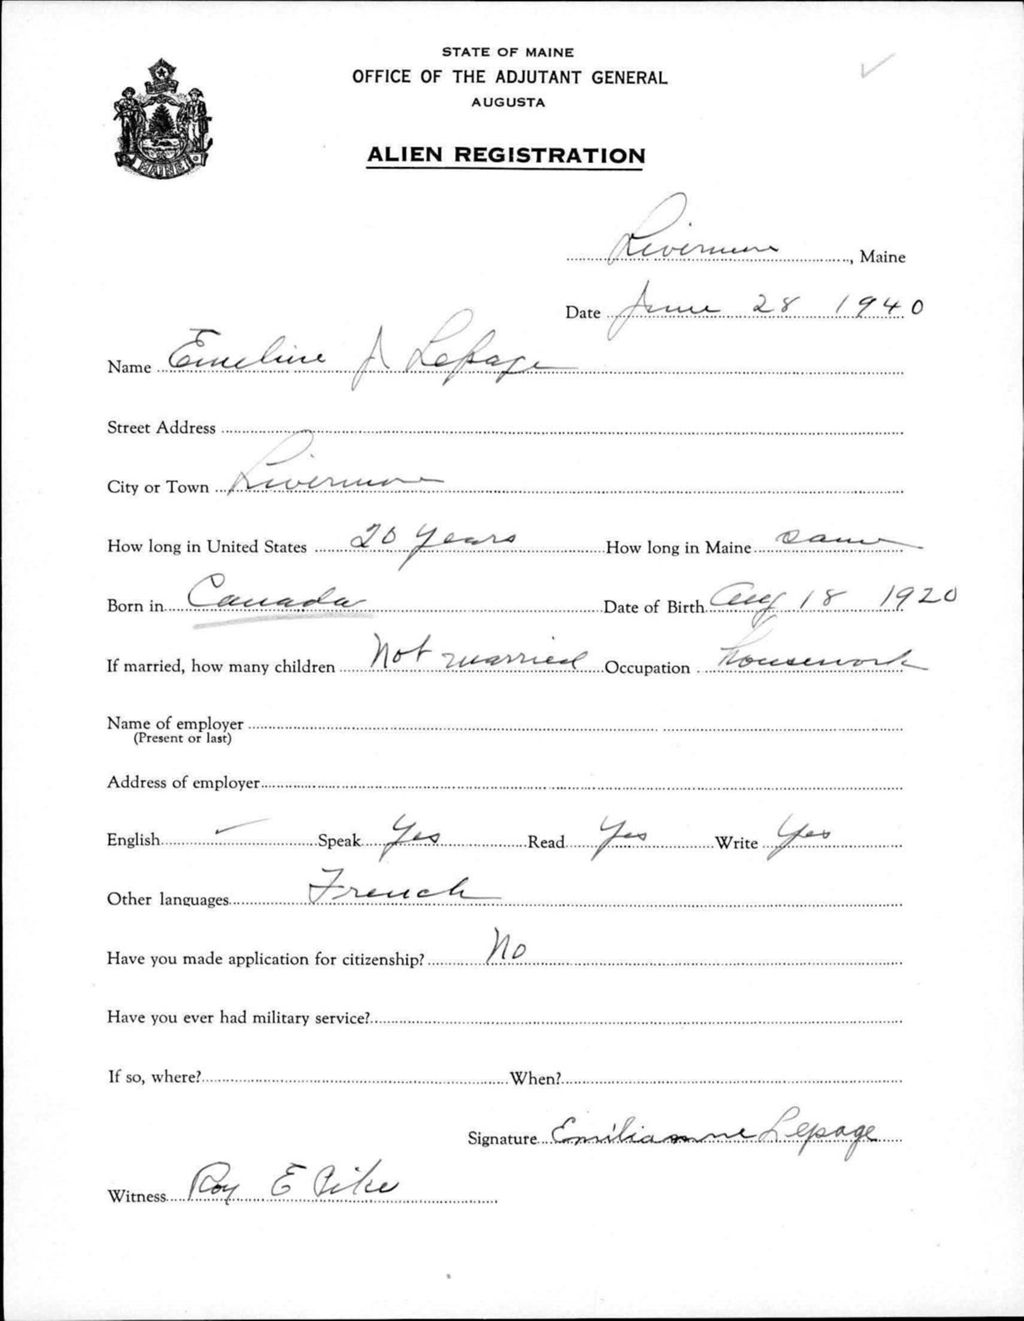 STATE OF MAINE
OFFICE OF THE ADJUTANT GENERAL
AUGUSTA
ALIEN REGISTRATION
MAINE
Livermore, Maine
Date June 28 1940
Name Emeline J Lepage
Street Address
City or Town Livermore
How long in United States 20 years How long in Maine same
Born in Canada Date of Birth Aug 18 1920
If married, how many children Not married Occupation housework
Name of employer
(Present or last)
Address of employer
English ✓ Speak Yes Read Yes Write Yes
Other languages French
Have you made application for citizenship? No
Have you ever had military service?
If so, where? When?
Signature Emilianne Lepage
Witness Roy E Pike